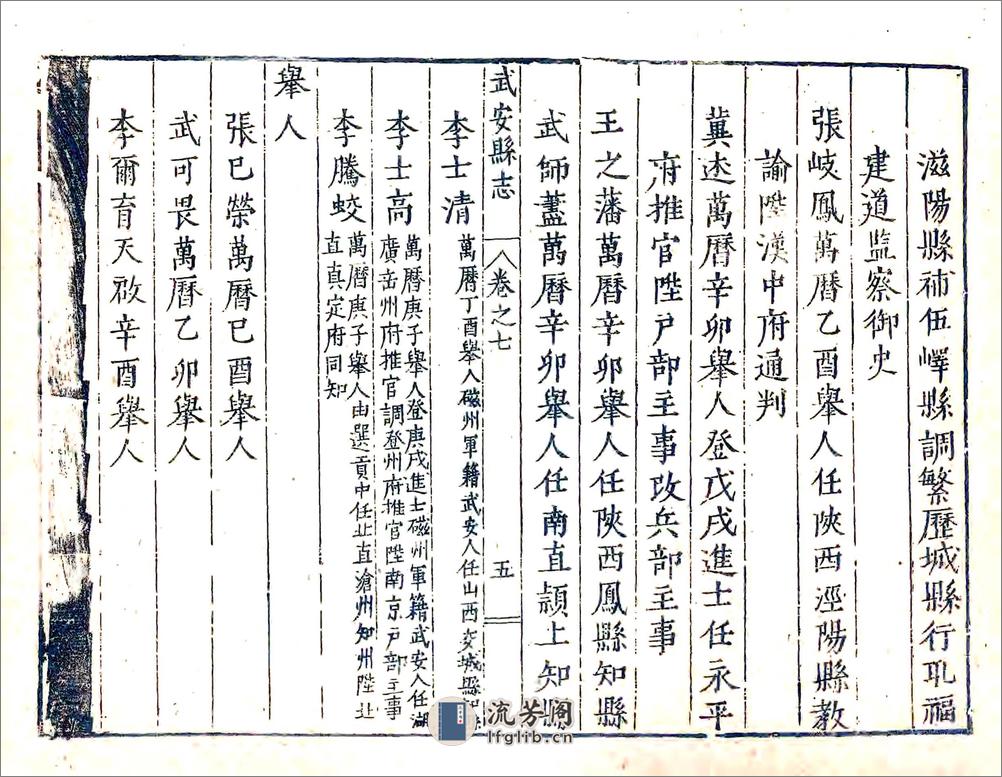 滋陽縣補任嶧縣調繁歷城縣行取福
建道監察御史
張岐鳳萬曆乙酉舉人任陜西涇陽縣教
諭陞漢中府通判
冀述萬曆辛卯舉人登戊戌進士任永平
府推官陞戶部主事改兵部主事
王之藩萬曆辛卯舉人任陜西鳳縣知縣
武師藎萬曆辛卯舉人任南直潁上知縣
武安縣志 卷之七 五
李士清 萬曆丁酉舉人磁州軍籍武安人任山西 城縣知縣
李士高 萬曆庚子舉人登庚戌進士磁州軍籍武安人任湖
廣岳州府推官調登州府推官陞南京戶部主事
李騰蛟 萬曆庚子舉人由選貢中任北直滄州知州陞北
直真定府同知
舉人
張巳榮萬曆己酉舉人
武可畏萬曆乙卯舉人
李爾育天啟辛酉舉人
流芳阁
lfglib.cn